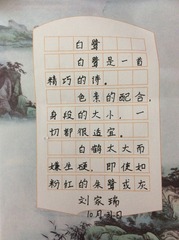 白鹭
白鹭是一首
精巧的诗。
色素的配合，
身段的大小，一
切都很适宜。
白鹤太大而
嫌生硬，即使如
粉红的朱鹭或灰
刘家瑞
10月